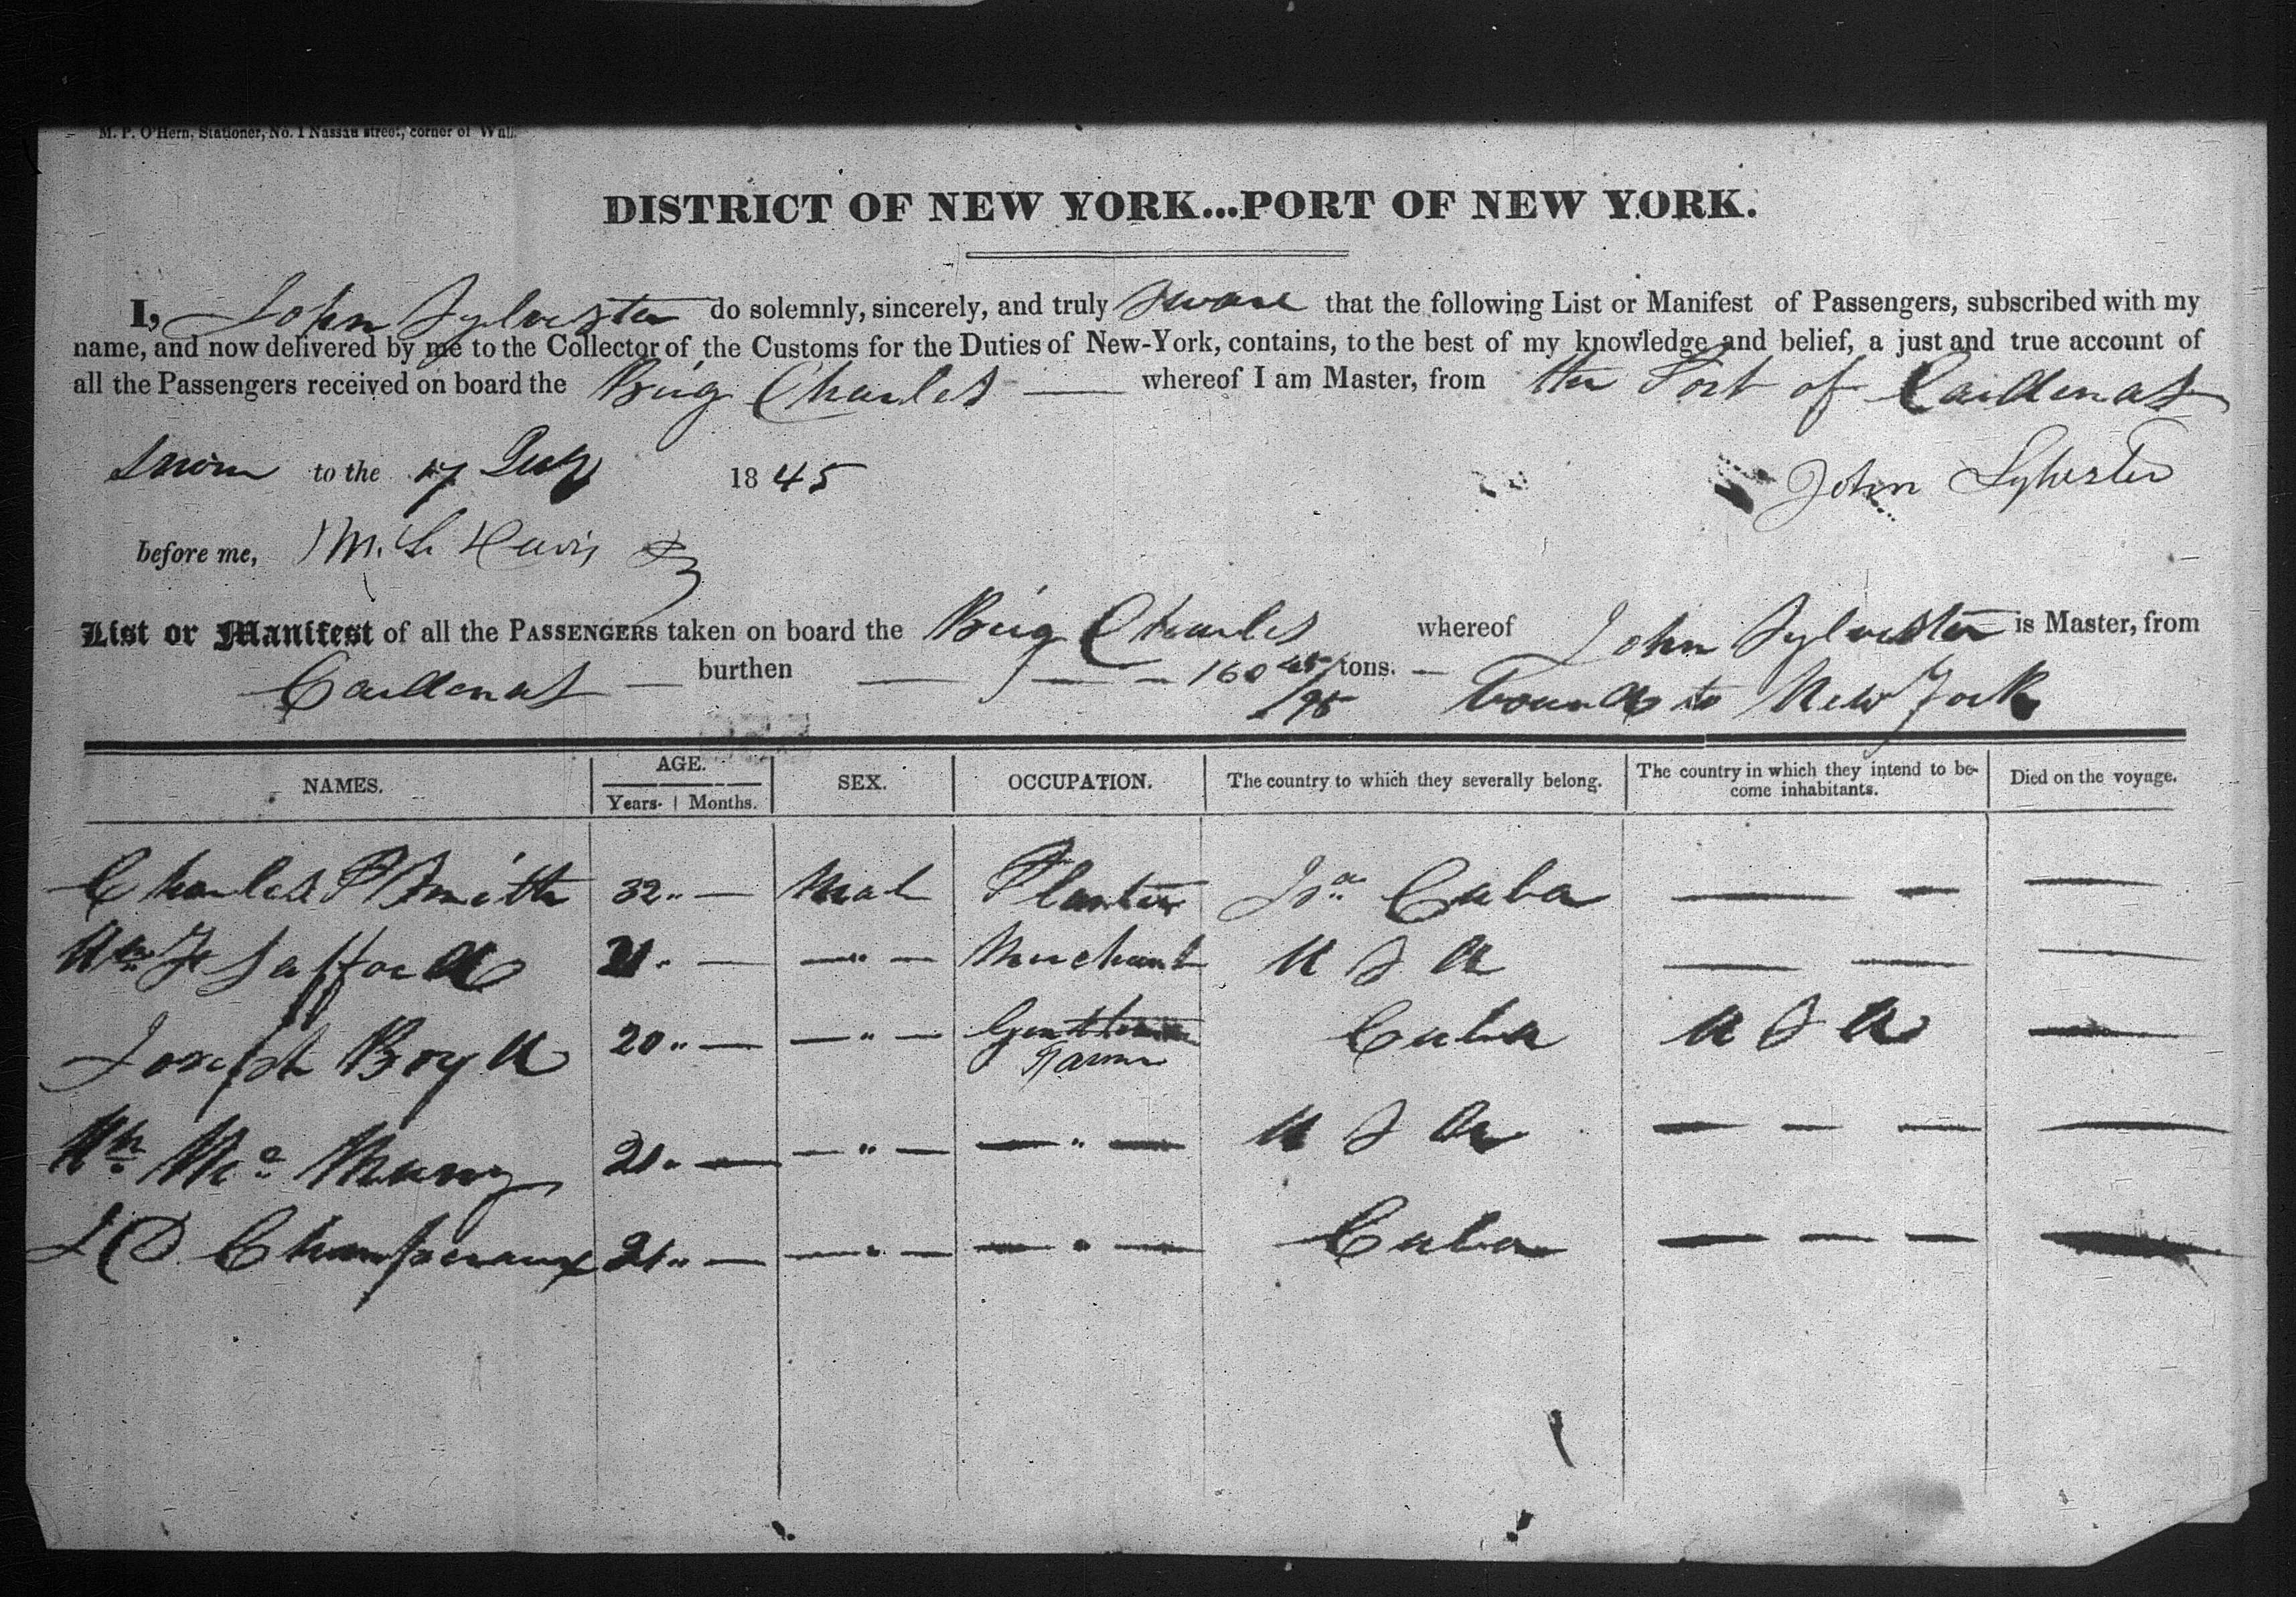 M. P. O'Hern, Stationer, No. 1 Nassau street, corner of Wall.
DISTRICT OF NEW YORK...PORT OF NEW YORK.
I, John Sylvester do solemnly, sincerely, and truly that the following List or Manifest of Passengers, subscribed with my
name, and now delivered by me to the Collector of the Customs for the Duties of New-York, contains, to the best of my knowledge and belief, a just and true account of
all the Passengers received on board the Brig Charles whereof I am Master, from the Port of Cardenas
Sworn to the 17 July 1845 John Sylvester
before me, M. L. Davis
List or Manifest of all the PASSENGERS taken on board the Brig Charles whereof John Sylvester is Master, from
Cardenas burthen 160 45/95 tons. bound to New York
NAMES. AGE. Years. Months. SEX. OCCUPATION. The country to which they severally belong. The country in which they intend to become inhabitants. Died on the voyage.
Charles P Smith 32 " — Male Planter Isa Cuba — — —
Wm Safford 21 " — — " — Merchant U S A — — —
Joseph Boyd 20 " — — " — Gentleman Cuba U S A —
Farmer
Wm Mc Murry 21 " — — " — — " — U S A — — — —
21 " — — " — — " — Cuba — — — —